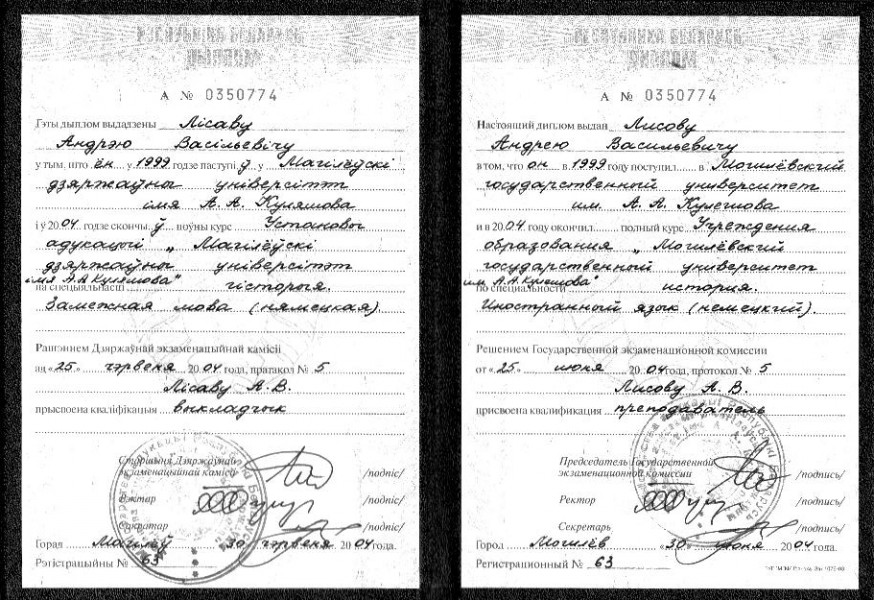 РЭСПУБЛІКА БЕЛАРУСЬ
ДЫПЛОМ
А № 0350774
Гэты дыплом выдадзены Лісаву
Андрэю Васільевічу
у тым, што ён у 1999 годзе паступіў у Магілёўскі
дзяржаўны універсітэт
імя А. А. Куляшова
і ў 2004 годзе скончыў поўны курс Установы
адукацыі „Магілёўскі
дзяржаўны універсітэт
імя А.А Куляшова"
па спецыяльнасці гісторыя.
Замежная мова (нямецкая).
Рашэннем Дзяржаўнай экзаменацыйнай камісіі
ад «25» чэрвеня 2004 года, пратакол № 5
Лісаву А.В.
прысвоена кваліфікацыя выкладчык
Старшыня Дзяржаўнай
экзаменацыйнай камісіі /подпіс/
Рэктар /подпіс/
Сакратар /подпіс/
Горад Магілёў «30» чэрвеня 2004 года.
Рэгістрацыйны № 63
РЕСПУБЛИКА БЕЛАРУСЬ
ДИПЛОМ
А № 0350774
Настоящий диплом выдан Лисову
Андрею Васильевичу
в том, что он в 1999 году поступил в Могилёвский
государственный университет
им. А. А. Кулешова
и в 2004 году окончил полный курс Учреждения
образования „Могилёвский
государственный университет
им. А.А Кулешова"
по специальности история.
Иностранный язык (немецкий).
Решением Государственной экзаменационной комиссии
от «25» июня 2004 года, протокол № 5
Лисову А. В.
присвоена квалификация преподаватель
Председатель Государственной
экзаменационной комиссии /подпись/
Ректор /подпись/
Секретарь /подпись/
Город Могилёв «30» июня 2004 года.
Регистрационный № 63